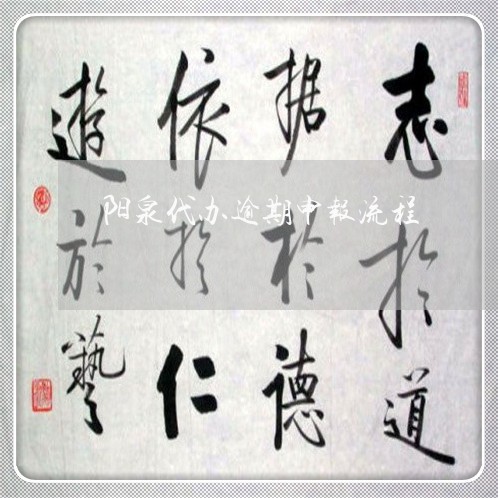 志扵道
据於德
依扵仁
遊於藝
阳泉代办逾期申报流程